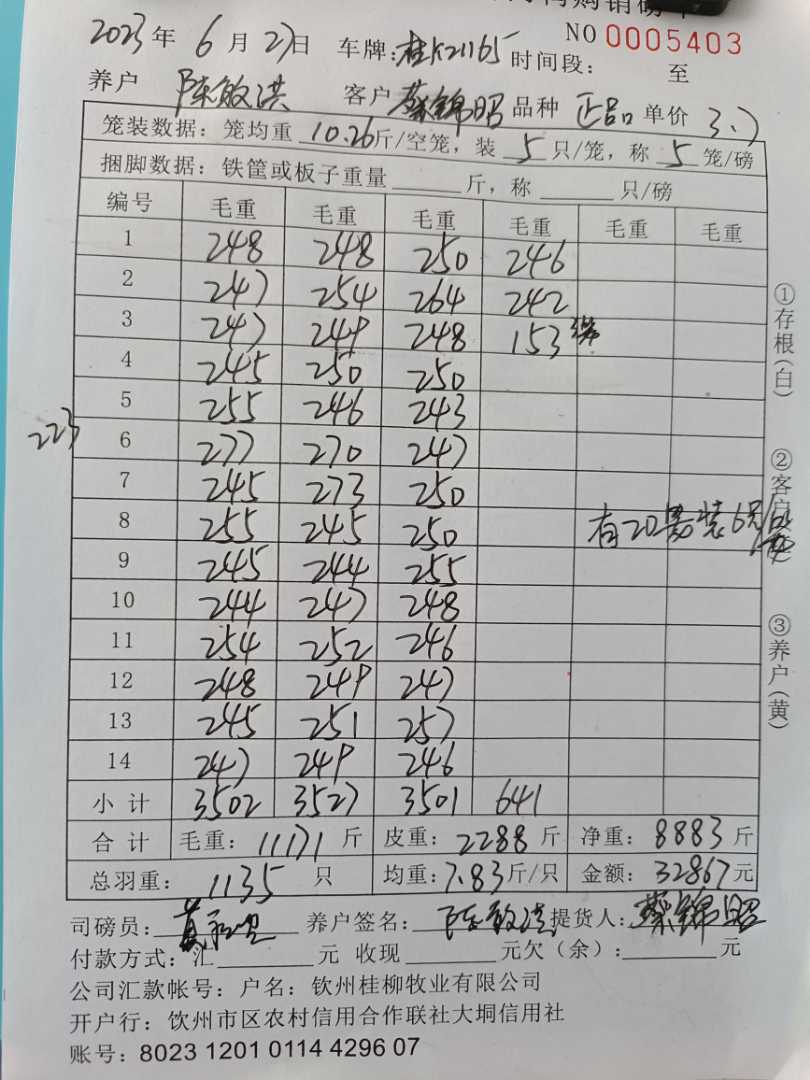 购销磅单
NO 0005403
2023年 6月27日 车牌:桂K21165 时间段: 至
养户 陈敏洪 客户 蔡锦昭 品种 正品 单价 3.7
笼装数据：笼均重 10.26斤/空笼，装 5 只/笼，称 5 笼/磅
捆脚数据：铁筐或板子重量 斤，称 只/磅
编号 毛重 毛重 毛重 毛重 毛重 毛重
1 248 248 250 246
2 247 254 264 242
3 247 249 248 153
4 245 250 250
5 255 246 243
223
6 277 270 247
7 245 273 250
8 255 245 250 有20 装6只
9 245 244 255
10 244 247 248
11 254 252 246
12 248 249 247
13 245 251 257
14 247 249 246
小计 3502 3527 3501 641
合计 毛重：11171 斤 皮重：2288 斤 净重：8883 斤
总羽重：1135 只 均重：7.83斤/只 金额：32867元
司磅员： 养户签名：陈敏洪 提货人：蔡锦昭
付款方式：汇 元 收现 元欠（余）： 元
公司汇款帐号：户名：钦州桂柳牧业有限公司
开户行：钦州市区农村信用合作联社大垌信用社
账号：8023 1201 0114 4296 07
①存根(白)
②客户
③养户(黄)